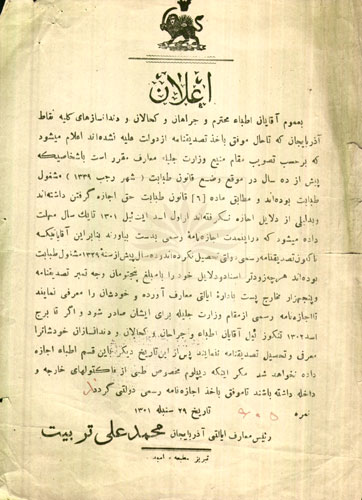 اعلان
بعموم آقایان اطباء محترم و جراحان و کحالان و دندانسازهای کلیه نقاط
آذربایجان که تاحال موفق باخذ تصدیقنامه ازدولت علیه نشده‌اند اعلام میشود
که برحسب تصویب مقام منیع وزارت جلیله معارف مقرر است باشخاصیکه
پیش از ده سال در موقع وضع قانون طبابت ( شهر رجب ۱۳۲۹ ) مشغول
طبابت بوده‌اند و مطابق ماده [۶] قانون طبابت حق اجازه گرفتن داشته‌اند
وبدلایلی از دلایل اجازه نگرفته‌اند از اول اسد ایت‌ئیل ۱۳۰۱ تایک سال مهلت
داده میشود که دراینمدت اجازه‌نامهٔ رسمی بدست بیاورند بنابراین آقایانیکه
تاکنون تصدیقنامه رسمی دولتی تحصیل نکرده‌اند و ده سال پیش از سنهٔ ۱۳۲۹ مشغول طبابت
بوده‌اند هرچه زودتر اسناد و دلایل خود را با مبلغ پنجتومان وجه تمبر تصدیقنامه
وپنجهزار مخارج پست بادارهٔ ایالتی معارف آورده و خودشان را معرفی نمایند
تا اجازه‌نامه رسمی از مقام وزارت جلیله برای ایشان صادر شود و اگر تا برج
اسد ۱۳۰۲ تنگوز ئیل آقایان اطباء و جراحان و کحالان و دندانسازان خودشانرا
معرفی و تحصیل تصدیقنامه ننمایند پس از این تاریخ دیگر باین قسم اطباء اجازه
داده نخواهد شد مگر اینکه دیپلوم مخصوص طبی از فاکولتهای خارجه و
داخله داشته باشند تاموفق باخذ اجازه‌نامه رسمی دولتی گردند
نمره تاریخ ۲۹ سنبله ۱۳۰۱
رئیس معارف ایالتی آذربایجان محمدعلی تربیت
تبریز مطبعه امید